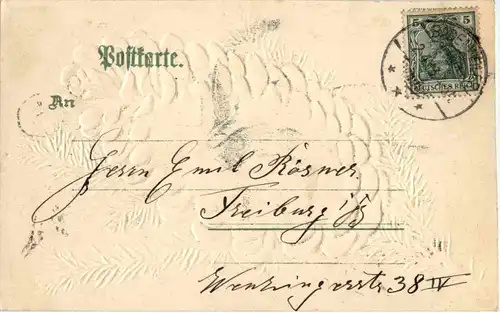 5 5
DEUTSCHES REICH
Postkarte.
An
Herrn Emil Rösner
Freiburg i/B
38 IV